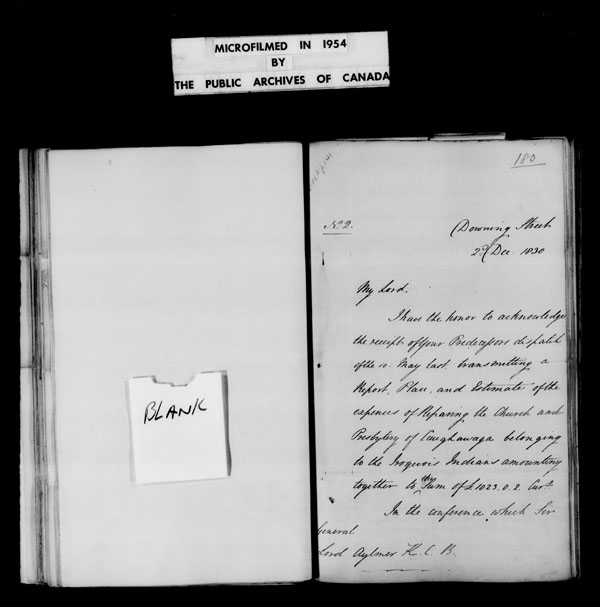 MICROFILMED IN 1954
BY
THE PUBLIC ARCHIVES OF CANADA
BLANK
180
No 2.
Downing Street
2d Dec. 1830
My Lord.
I have the honor to acknowledge
the receipt of Your Predecessors dispatch
of the 10. May last. transmitting a
Report, Plan, and Estimate of the
expences of Reparing the Church and
Presbytery of Caughnawaga belonging
to the Iroquois Indians amounting
together to the Sum of £1023.0.2. Curt
In the conference which Sir
General
Lord Aylmer K.C.B.